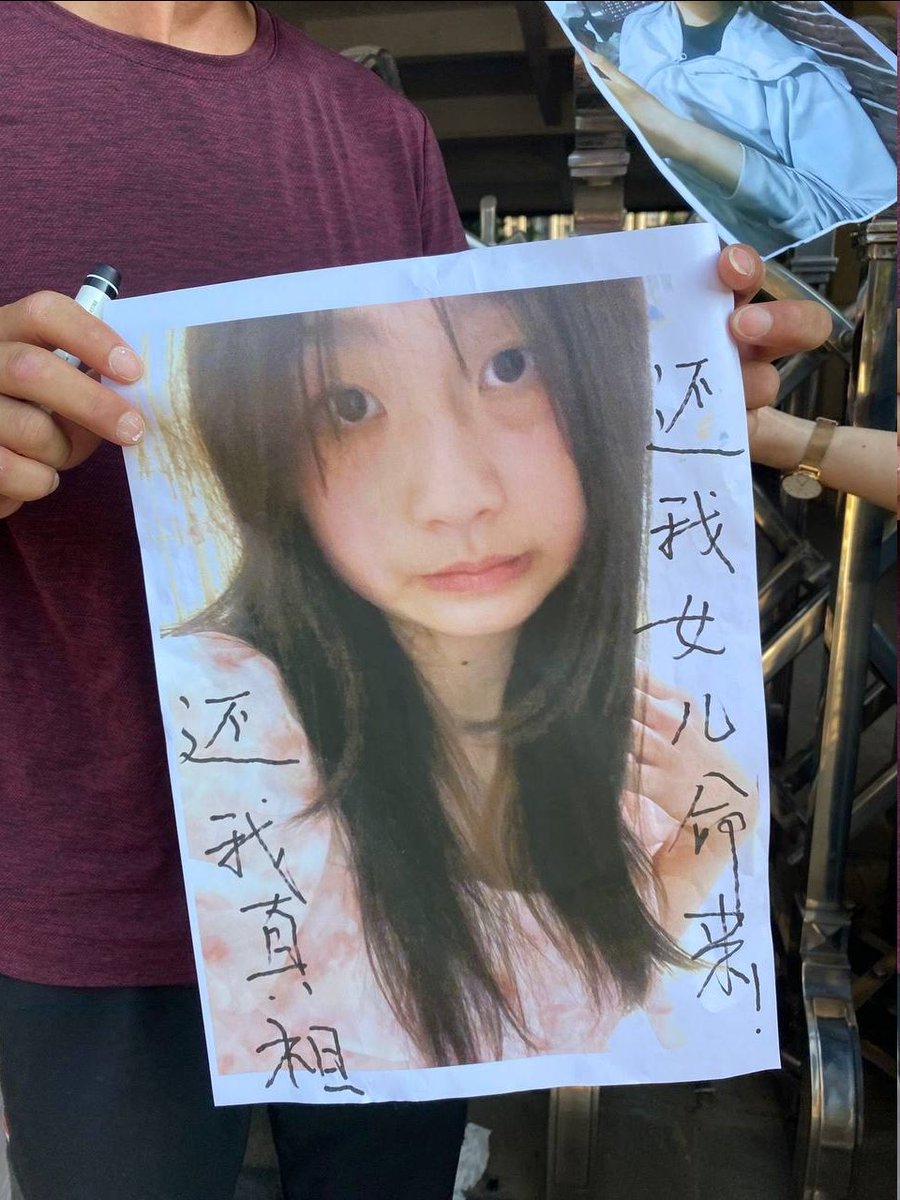 还我女儿命来!
还我真相